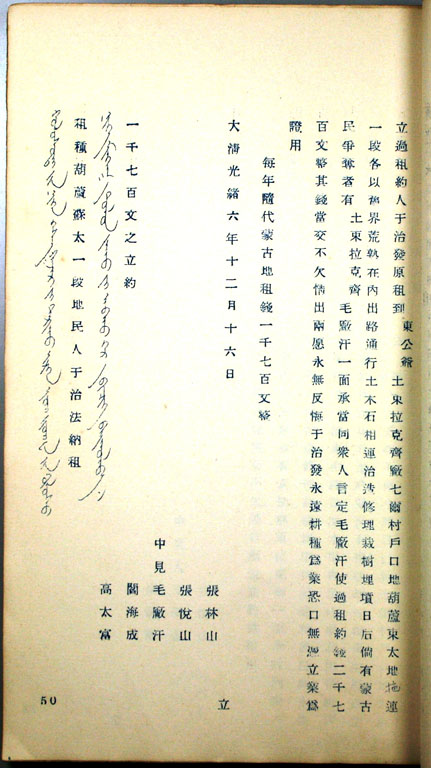 立過租約人于治發原租到　東公爺　土東拉克齊廠七爾村戶口地葫蘆東太地拖連
一段各以舊界荒熟在內出路通行土木石相連治造修理栽樹埋墳日后倘有蒙古
民爭奪者有　土東拉克齊　毛廠汗一面承當同衆人言定毛廠汗使過租約錢二千七
百文整其錢當交不欠情出兩愿永無反悔于治發永遠耕種爲業恐口無憑立業爲
證用
每年隨代蒙古地租錢一千七百文整
大清光緒六年十二月十六日　立
張林山
張悅山
中見毛廠汗
閻海成
高太富
一千七百文之立約
租種葫蘆蘇太一段地民人于治法納租
50